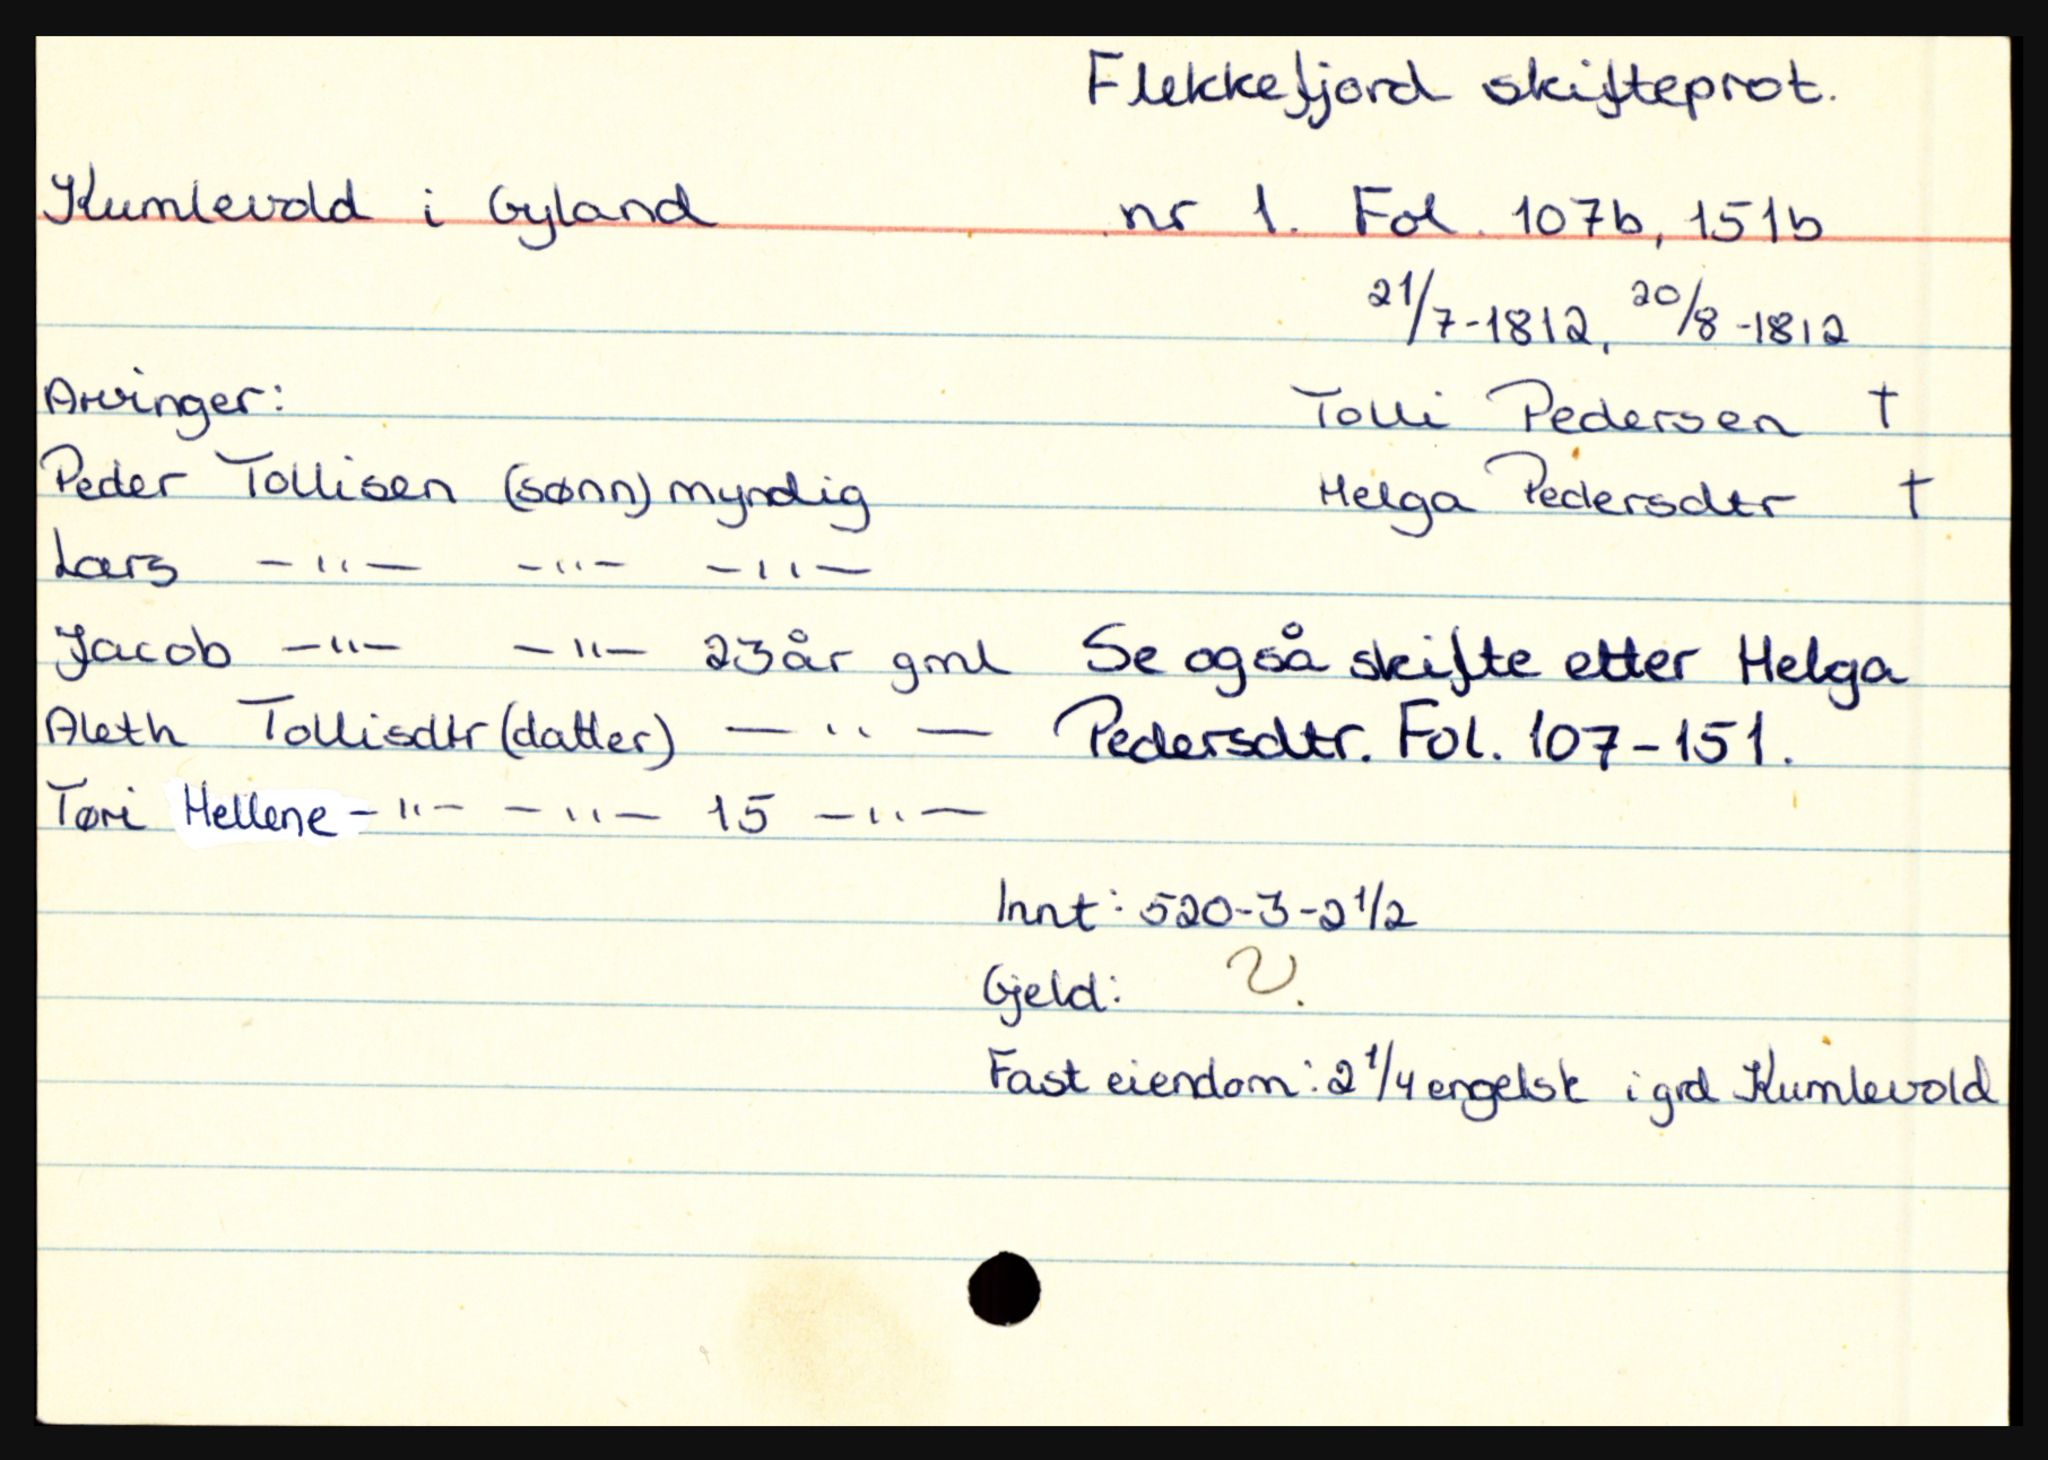 Flekkefjord skifteprot.
Kumlevold i Gyland nr 1. Fol. 107b, 151b
21/7-1812, 20/8-1812
Arvinger: Tolli Pedersen †
Peder Tollisen (sønn) myndig Helga Pedersdtr †
Lars -"- -"- -"-
Jacob -"- -"- 23 år gml Se også skifte etter Helga
Aleth Tollisdtr (datter) -"- Pedersdtr. Fol. 107-151.
Tøri Hellene -"- -"- 15 -"-
Innt: 520-3-2 1/2
Gjeld:
Fast eiendom: 2 1/4 engelsk i grd Kumlevold